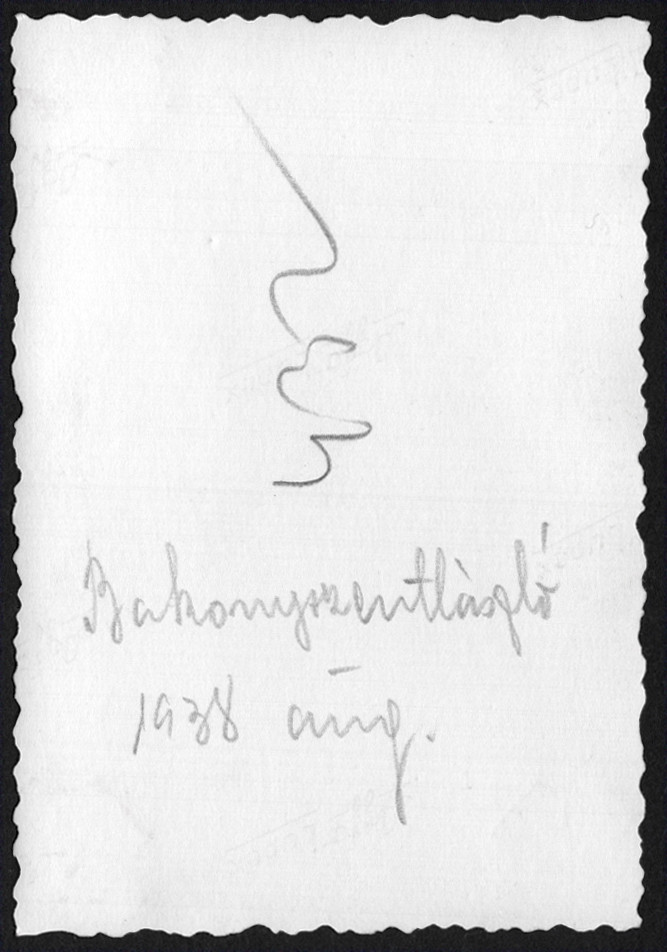 Bakonyszentlászló
1938 aug.